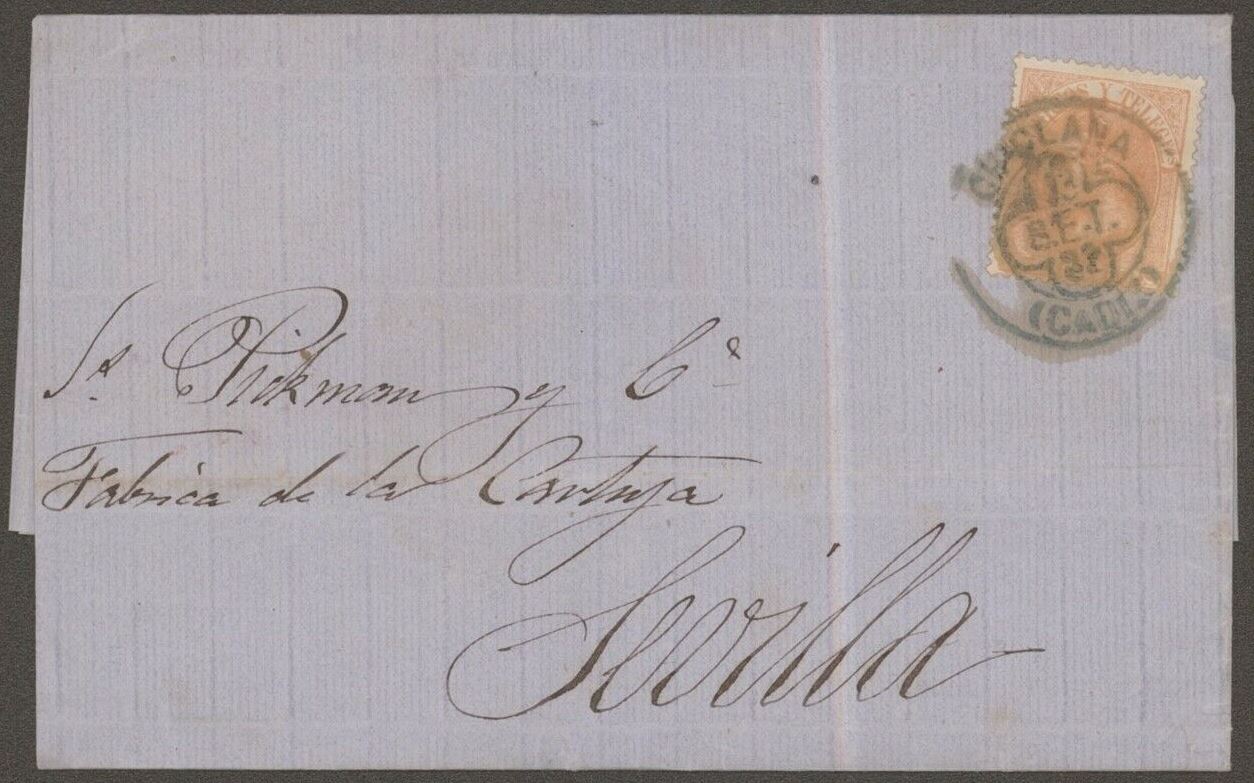 Y TELEGS
CHICLANA
SET.
(CADIZ)
Sr. Pickman y Cª
Fabrica de la Cartuja
Sevilla